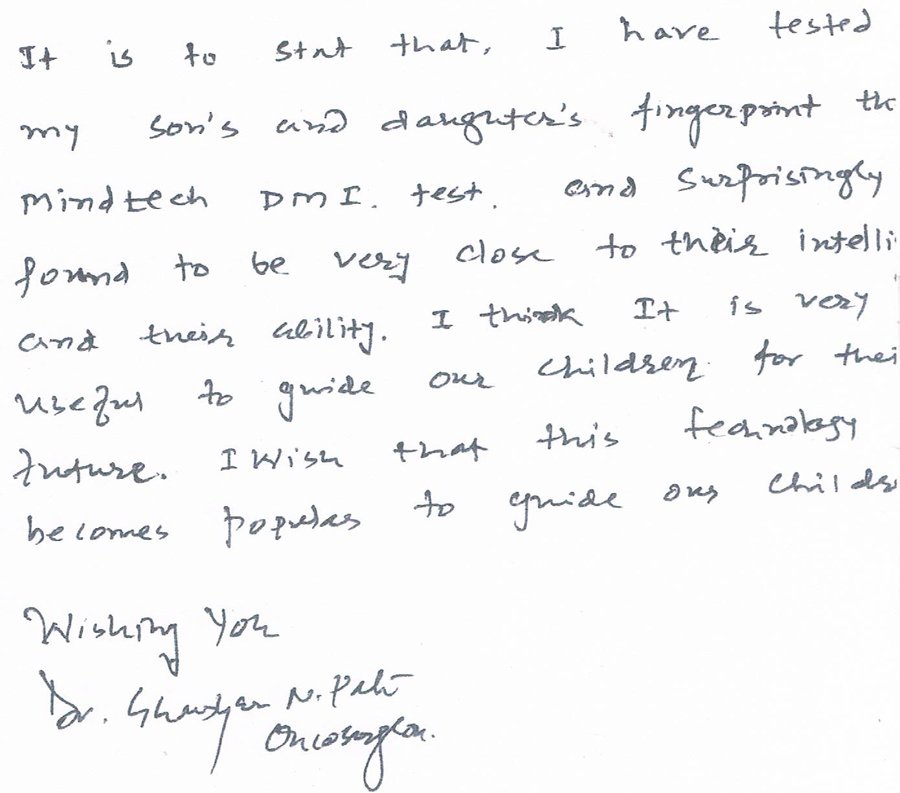 It is to stat that, I have tested
my son's and daughter's fingerprint th
mindtech DMI. test. and surprisingly
found to be very close to their intelli
and their ability. I think It is very
useful to guide our children for thei
future. I wish that this technology
becomes popular to guide our childr
Wishing You
Dr. N. Patil
Oncosurgeon.